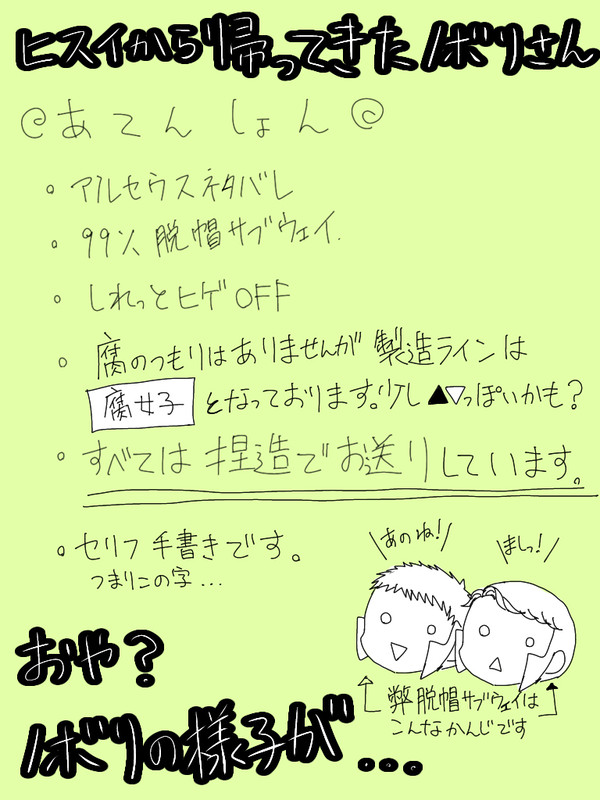 ヒスイから帰ってきたノボリさん
@あてんしょん@
・アルセウスネタバレ
・99%脱帽サブウェイ.
・しれっとヒゲOFF
・腐のつもりはありませんが製造ラインは
腐女子となっております。少し▲▽っぽいかも？
・すべては捏造でお送りしています。
・セリフ手書きです。
つまりこの字...
\あのね!/
\ましっ!/
弊脱帽サブウェイは
こんなかんじです
おや？
ノボリの様子が...